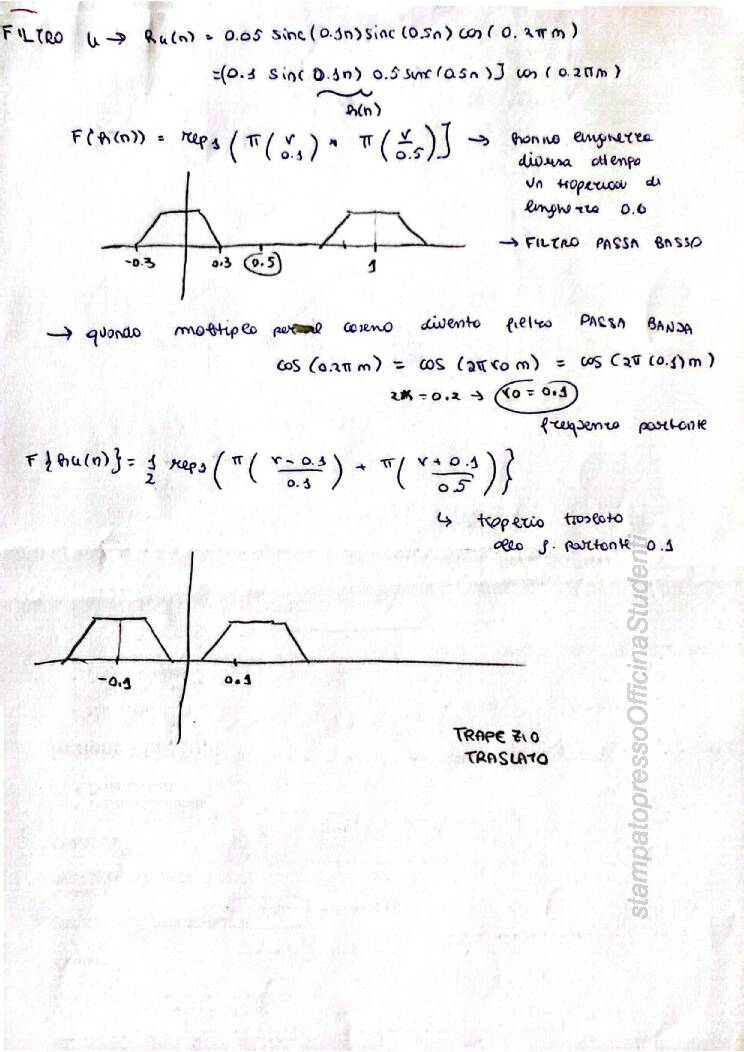 FILTRO 4 → h4(n) = 0.05 sinc(0.1n) sinc(0.5n) cos(0.2πn)
=[0.1 sinc(0.1n) 0.5 sinc(0.5n)] cos(0.2πn)
h(n)
F{h(n)} = rep1 ( π(ν/0.1) * π(ν/0.5) ] → hanno lunghezza
diversa ottengo
un trapezio di
lunghezza 0.6
-0.3 0.3 0.5 1
→ FILTRO PASSA BASSO
→ quando moltiplico per coseno divento filtro PASSA BANDA
cos(0.2πn) = cos(2πν0n) = cos(2π(0.1)n)
= 0.2 → ν0 = 0.1
frequenza portante
F{h4(n)} = 1/2 rep1 ( π( ν-0.1/0.1 ) + π( ν+0.1/0.5 ) }
↳ trapezio traslato
alla f. portante 0.1
-0.1 0.1
TRAPEZIO
TRASLATO
stampatopressoOfficinaStudenti